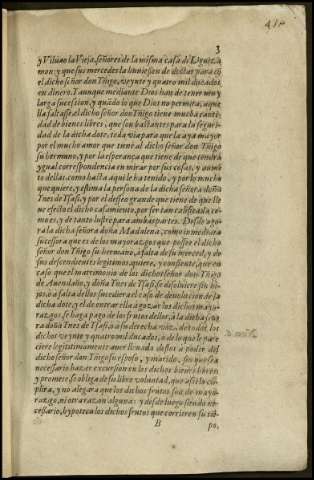 3
y Viluao la Vieja, señores de la misma casa de Vrquiza
mon: y que sus mercedes la huuiessen de dotar para cō
el dicho señor don Yñigo, veynte y quatro mil ducados
en dinero. Y aunque mediante Dios han de tener muy
larga sucession, y quādo lo que Dios no permita, aque
lla faltasse, el dicho señor don Yñigo tiene mucha canti
dad de bienes libres, que son bastantes para la seguri
dad de la dicha dote, toda via para que la aya mayor
por el mucho amor que tiene al dicho señor don Yñigo
su hermano, y por la esperança que tiene de que tendrà
ygual correspondencia en mirar por sus cosas, y aumēto
dellas, como hasta aqui le ha tenido, y por lo mucho
que quiere, y estima la persona de la dicha señora doña
Ynes de Ysasi, y por el desseo grande que tiene de que lle
ue efecto el dicho casamiento, por ser tan
y de tanto lustre para ambas partes. Desde aora
la dicha señora doña Madalena, como inmediata
sucessora que es de los mayorazgos que possee el dicho
señor don Yñigo su hermano, a falta de su merced, y de
sus descendientes legitimos, quiere, y consiente, que en
caso que el matrimonio de los dichos señor don Yñigo
de Auendaño, y doña Ynes de Ysasi, se dissoluiere sin hi
jos, o a falta dellos sucediere el caso de deuolucion de la
dicha dote, y el de entrar ella a gozar los dichos mayo
razgos, se haga pago de los frutos dellos, a la dicha seño
ra doña Ynes de Ysasi, o a su derecho de todos los
dichos veynte y quatro mil ducados, o de lo que le pare
ciere legitimamente auer lleuado dellos a poder del
dicho señor don Yñigo su esposo, y marido, sin que sea
necessario hazer excursion en los dichos bienes libres:
y promete, se obliga de su libre voluntad, que assi lo cum
plirà, y no alegarà que los dichos frutos son de mayo
razgo, ni otra razon alguna: y desde luego siendo ne
cessario, hypoteca los dichos frutos que corrieren en su tiē
B
po,